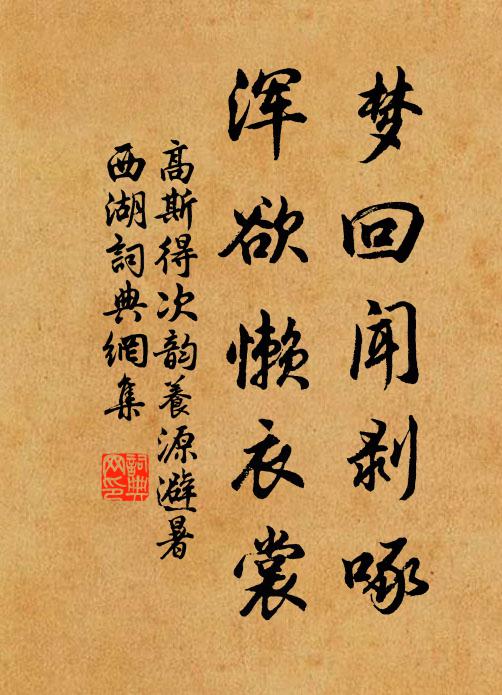 梦回闻剥啄
浑欲懒衣裳
高斯得次韵养源避暑
西湖詞典網集
詞典
网印